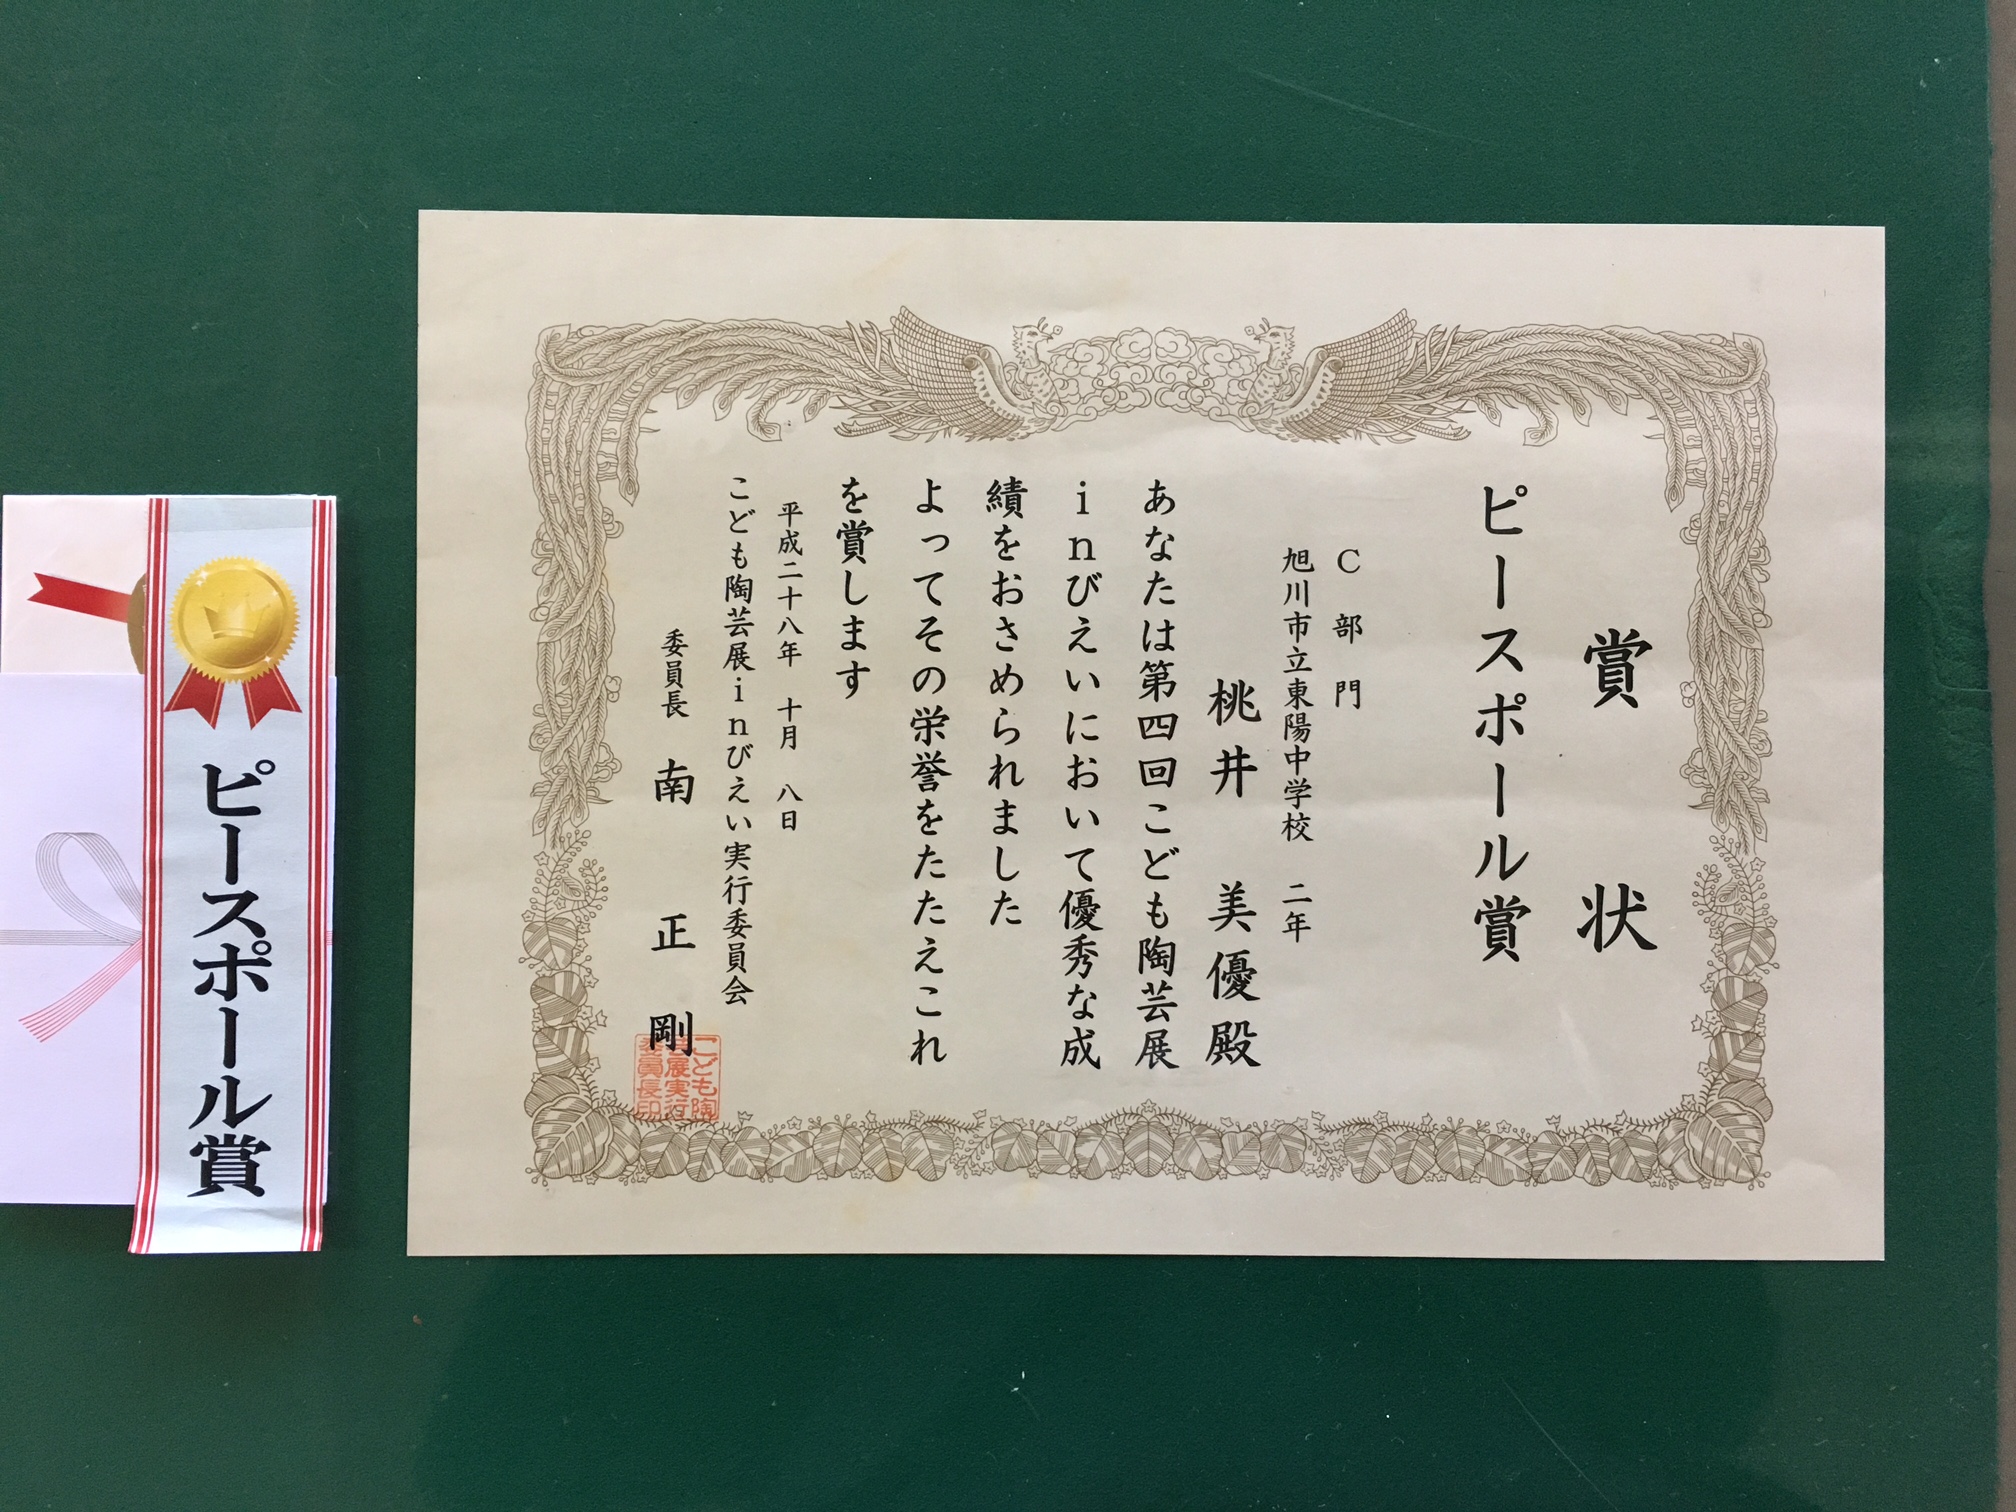 賞状
ピースポール賞
C部門
旭川市立東陽中学校 二年
桃井 美優殿
あなたは第四回こども陶芸展
inびえいにおいて優秀な成
績をおさめられました
よってその栄誉をたたえこれ
を賞します
平成二十八年 十月 八日
こども陶芸展inびえい実行委員会
委員長 南 正 剛
こども陶
芸展実行
委員長印
ピースポール賞